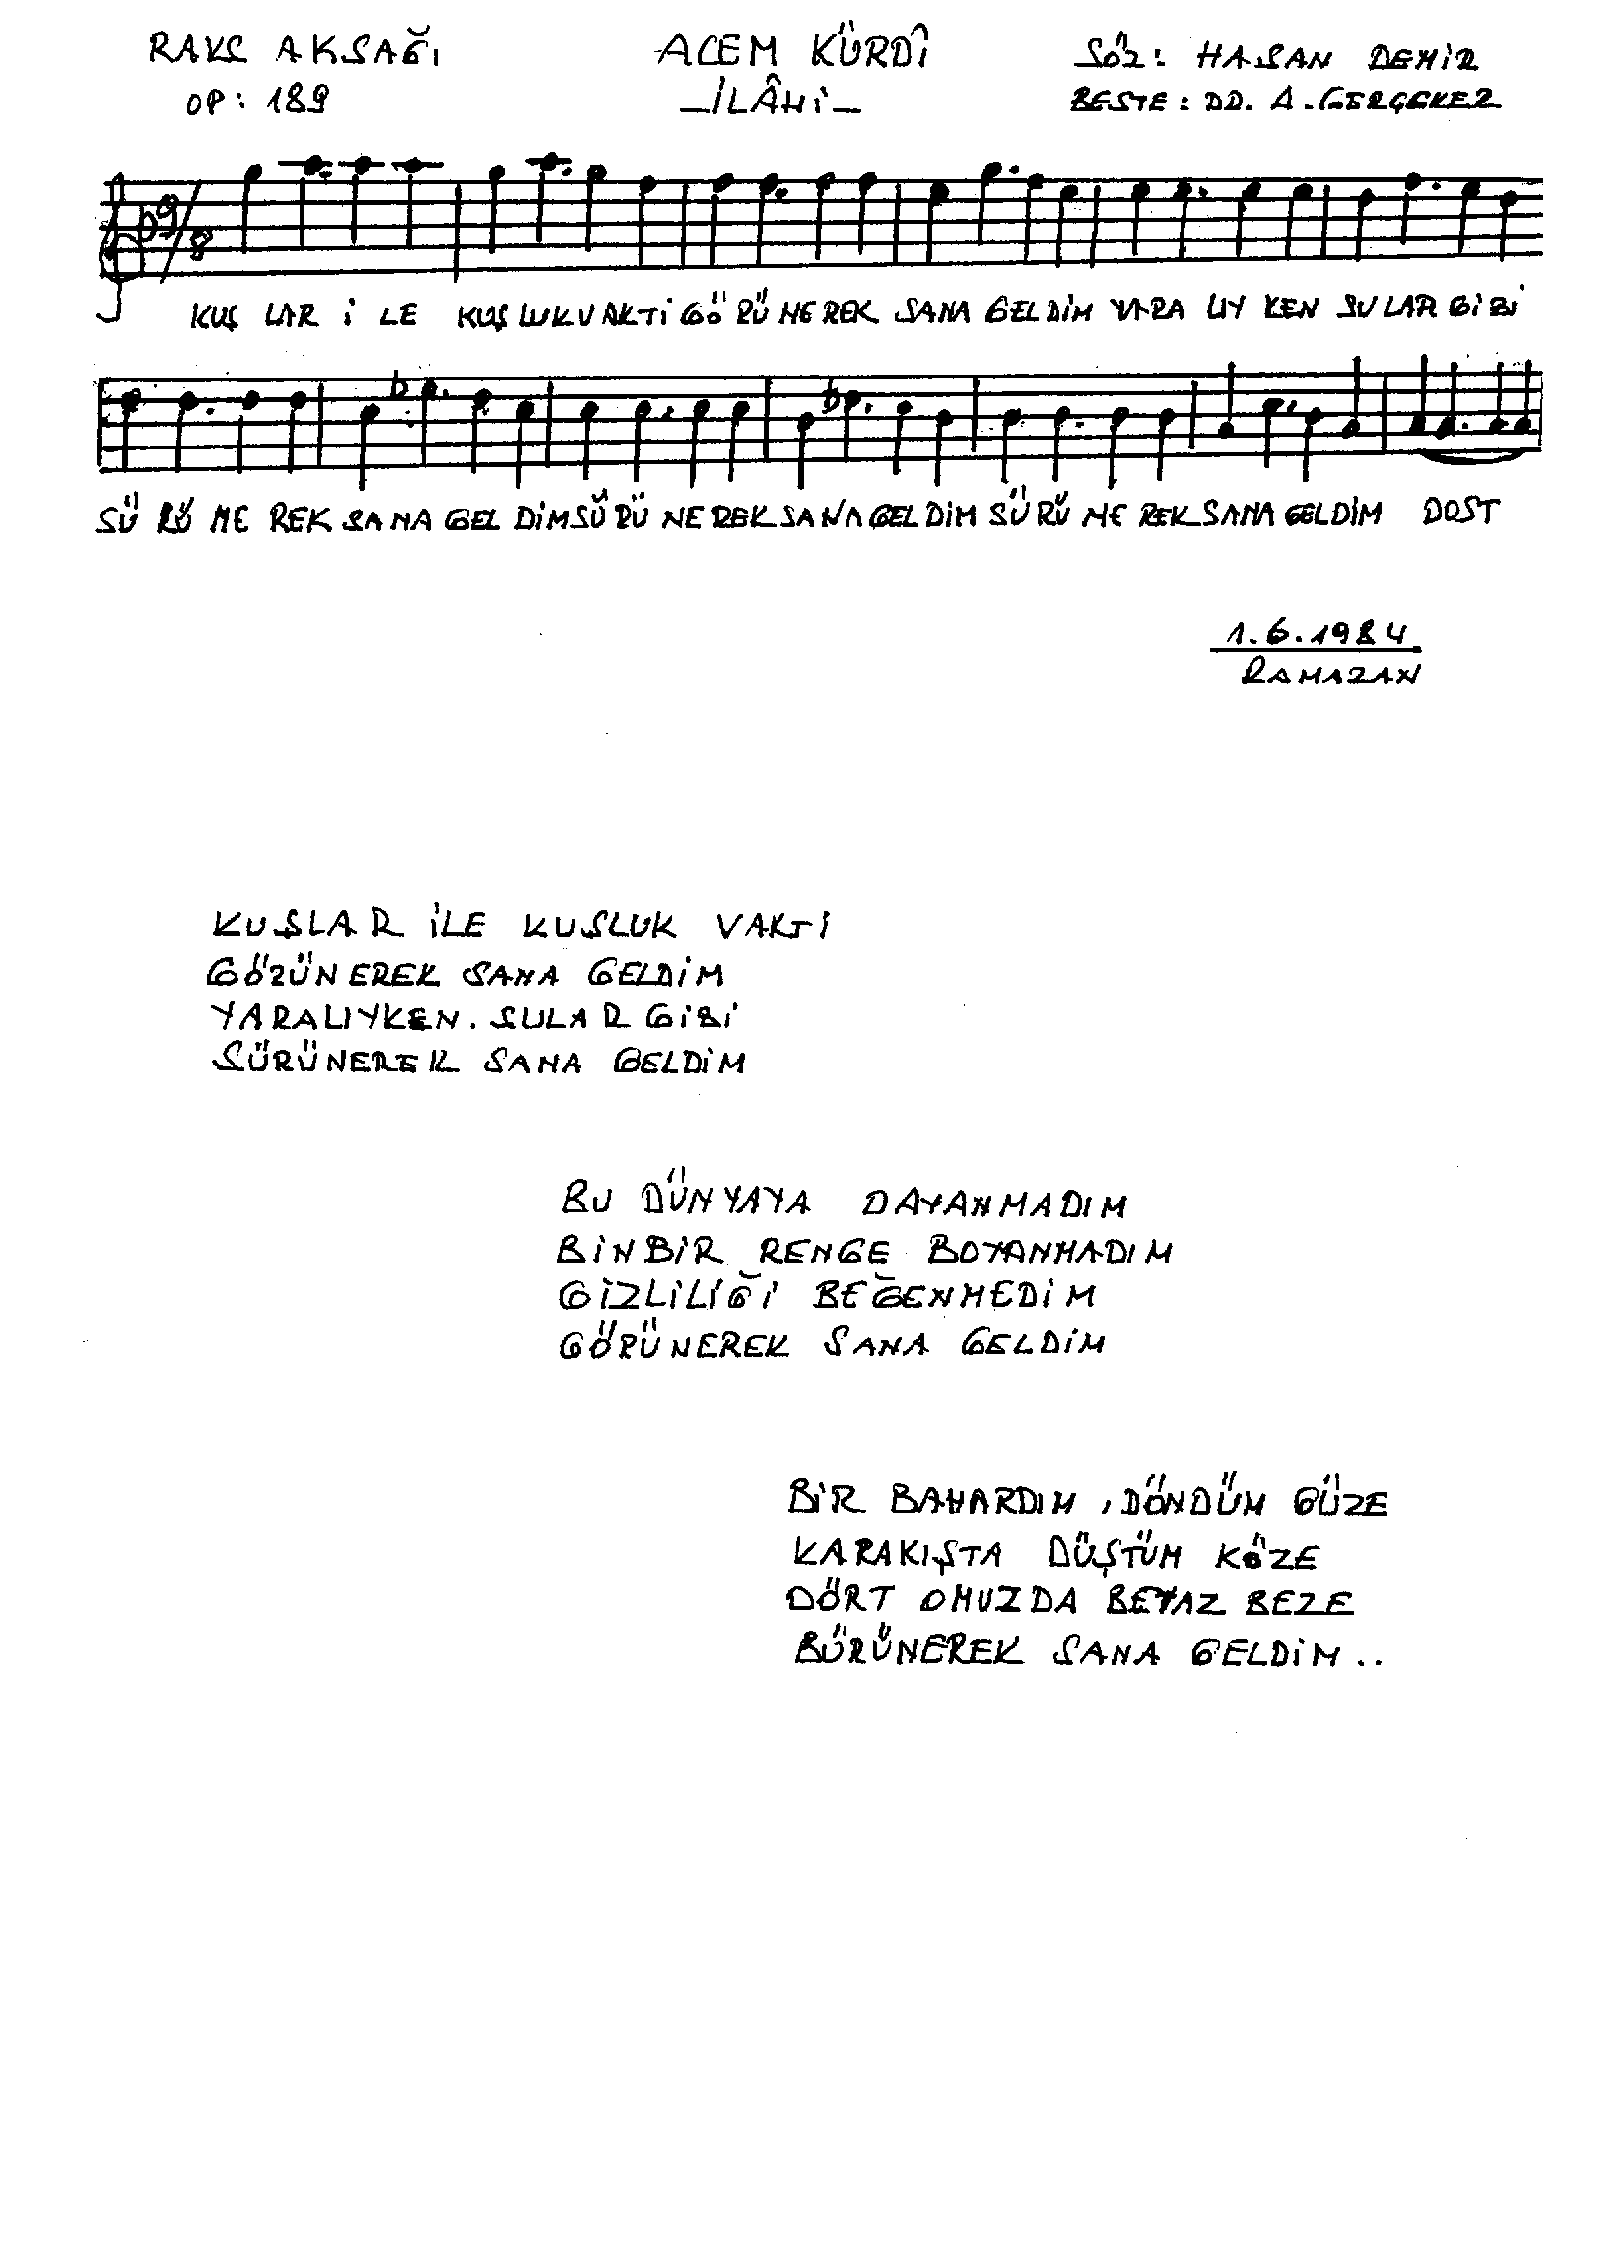 RAKS AKSAĞI
OP: 189
ACEM KÜRDÎ
-İLÂHİ-
SÖZ: HASAN DEMİR
BESTE: DD. A. GERÇEKER
9/8
KUŞ LAR İ LE KUŞ LUK VAKTİ GÖ RÜ NE REK SANA GELDİM YARA LIY KEN SU LAR GİBİ
SÜ RÜ NE REK SANA GEL DİM SÜ RÜ NE REK SANA GELDİM SÜ RÜ NE REK SANA GELDİM DOST
1.6.1984
RAMAZAN
KUŞLAR İLE KUŞLUK VAKTİ
GÖRÜNEREK SANA GELDİM
YARALIYKEN. SULAR GİBİ
SÜRÜNEREK SANA GELDİM
BU DÜNYAYA DAYANMADIM
BİNBİR RENGE BOYANMADIM
GİZLİLİĞİ BEĞENMEDİM
GÖRÜNEREK SANA GELDİM
BİR BAHARDIM, DÖNDÜM GÜZE
KARAKIŞTA DÜŞTÜM KÖZE
DÖRT OMUZDA BEYAZ BEZE
BÜRÜNEREK SANA GELDİM..